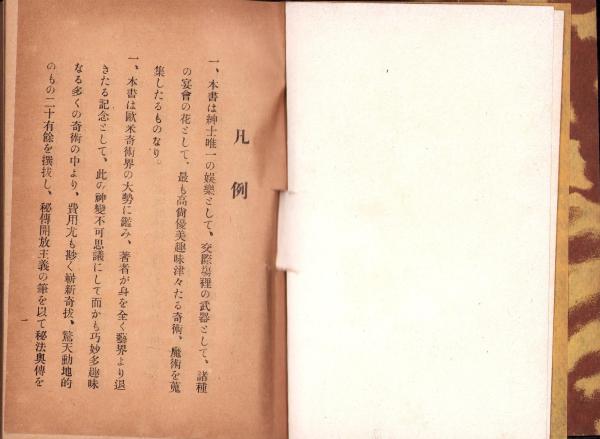 凡例
一、本書は紳士唯一の娯樂として、交際場裡の武器として、諸種
の宴會の花として、最も高尙優美趣味津々たる奇術、魔術を蒐
集したるものなり。
一、本書は歐米奇術界の大勢に鑑み、著者が身を全く藝界より退
きたる記念として、此の神變不可思議にして而かも巧妙多趣味
なる多くの奇術の中より、費用尤も尠く嶄新奇拔、驚天動地的
のもの二十有餘を撰拔し、秘傳開放主義の筆を以て秘法奧傳を
一